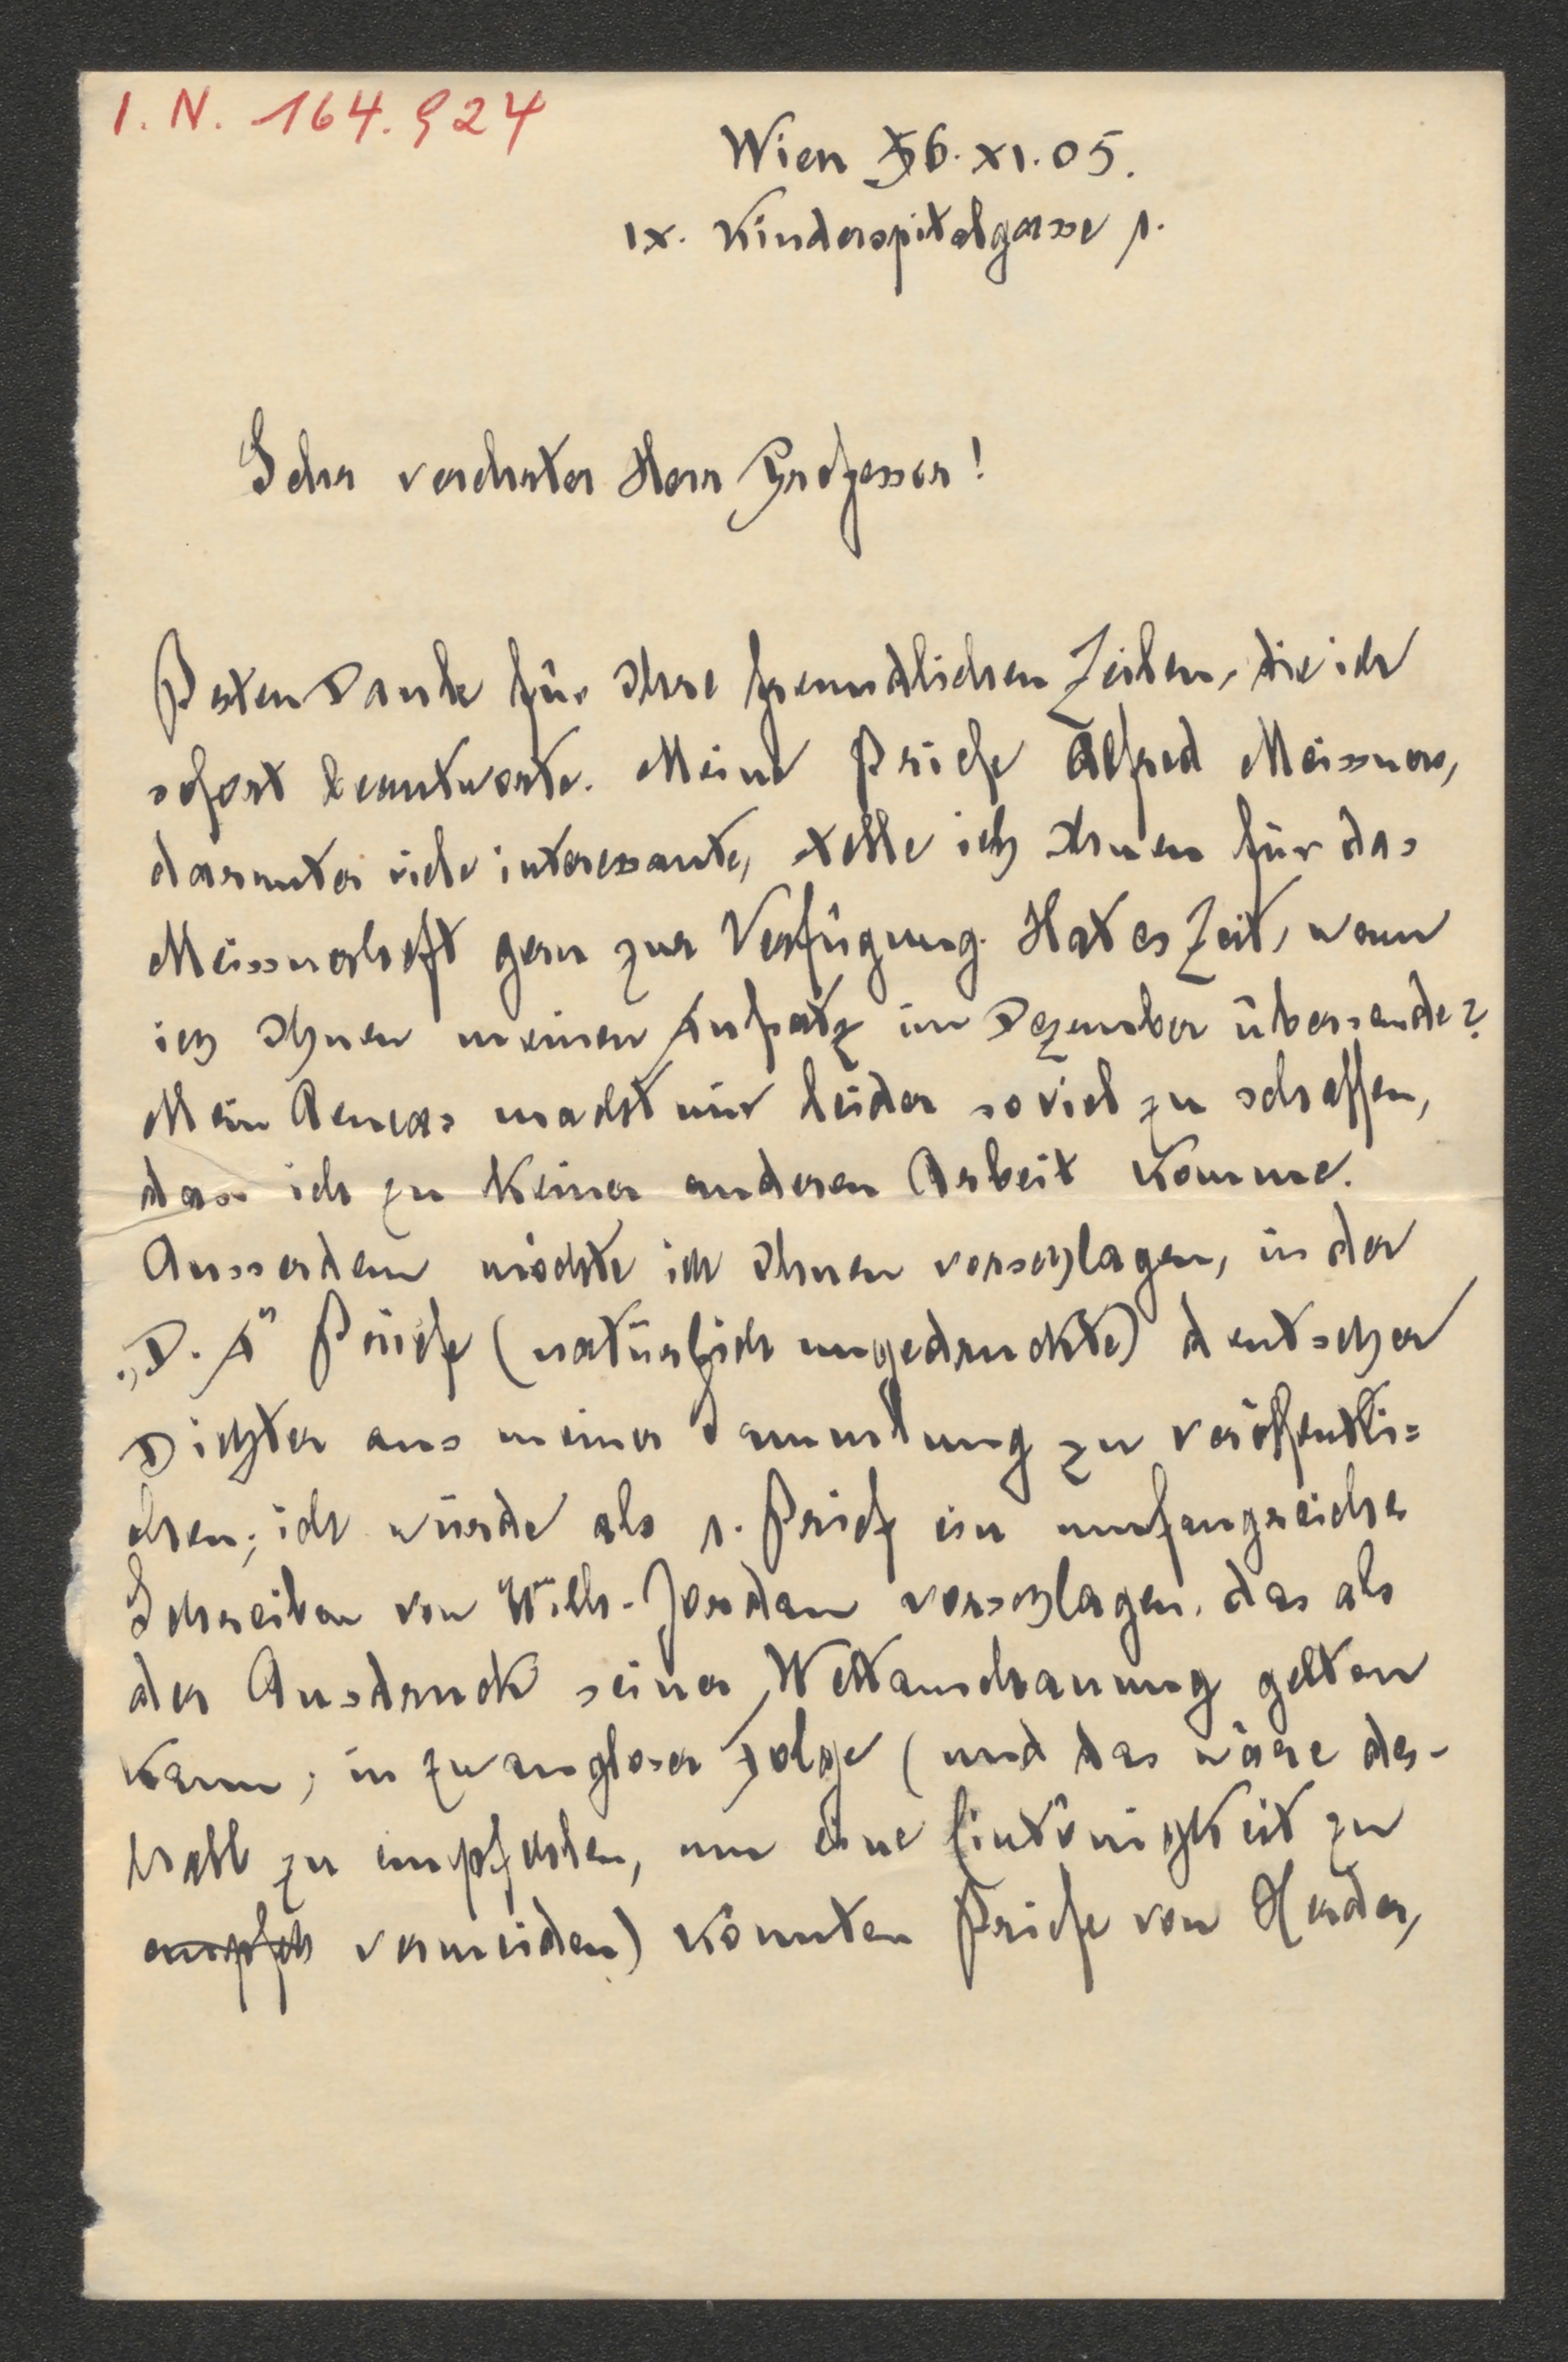 I. N. 164.924
Wien 6. XI. 05.
IX. Kinderspitalgasse 1.
Sehr verehrter Herr Professor!
Besten Dank für Ihre freundlichen Zeilen, die ich
sofort beantworte. Meine Briefe Alfred Meissners,
darunter viele interessante, stelle ich Ihnen für das
Meissnerheft gern zur Verfügung. Hat es Zeit, wenn
ich Ihnen meinen Aufsatz im Dezember übersende?
Mein macht mir leider soviel zu schaffen,
dass ich zu keiner anderen Arbeit komme.
Ausserdem möchte ich Ihnen vorschlagen, in der
„D. A" Briefe (natürlich ungedruckte) deutscher
Dichter aus meiner Sammlung zu veröffentli=
chen; ich würde als 1. Brief ein umfangreiches
Schreiben von Wilh. Jordan vorschlagen, das als
der Ausdruck seiner Weltanschauung gelten
kann; in zwangloser Folge (und das wäre des-
halb zu empfehlen, um eine Eintönigkeit zu
empfeh vermeiden) könnten Briefe von Herder,